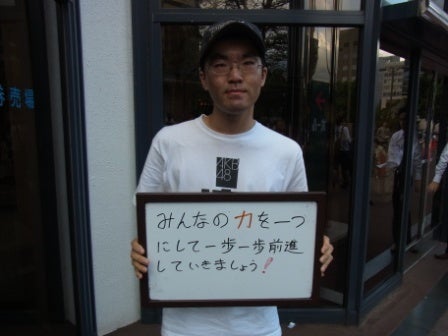 券売場
AKB
48
みんなの力を一つ
にして一歩一歩前進
していきましょう!